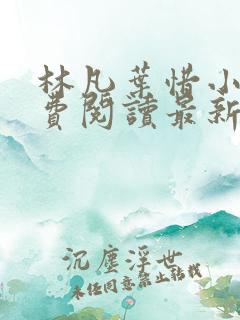 林凡葉惜小
費閱讀最新
沉塵浮世
未经同意禁止转载